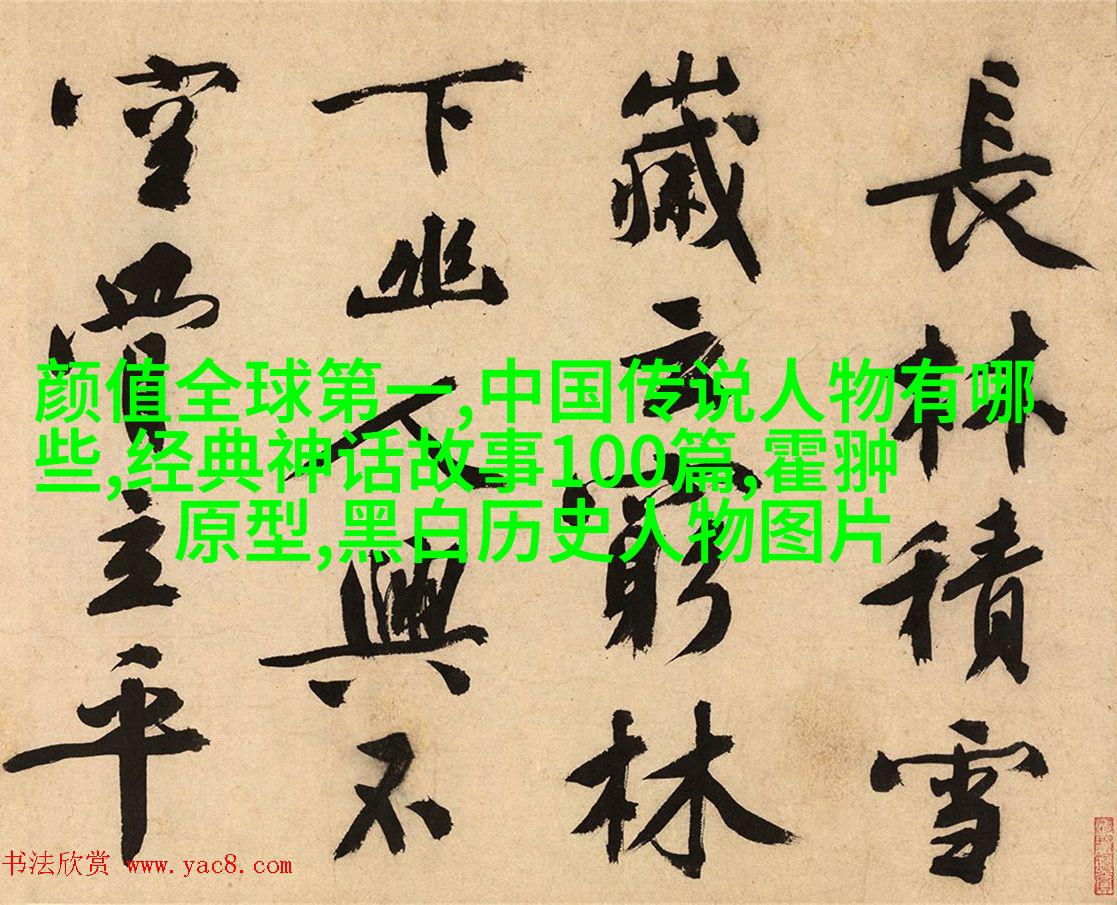 長林積雪
歲云窮林
下幽人興不
空立平
颜值全球第一,中国传说人物有哪
些,经典神话故事100篇,霍翀
原型,黑白历史人物图片
书法欣赏 www.yac8.com